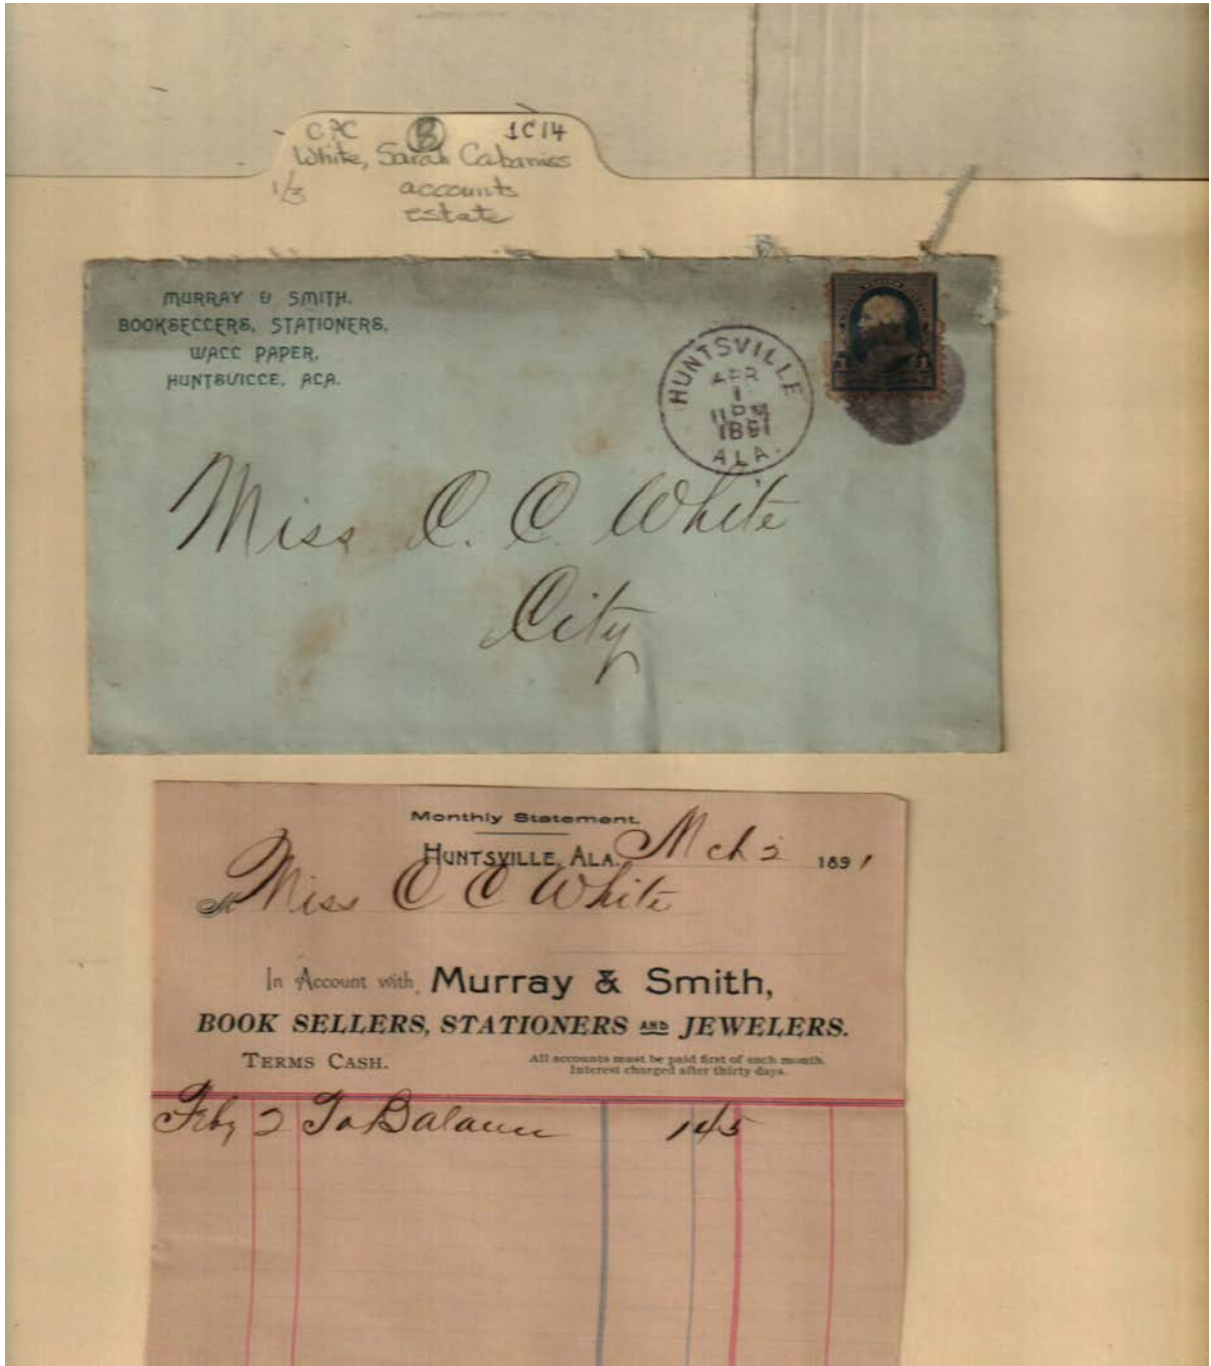 CPC B 1C14
White, Sarah Cabaniss
1/3 accounts
estate
MURRAY & SMITH,
BOOKSELLERS, STATIONERS,
WALL PAPER,
HUNTSVILLE, ALA.
HUNTSVILLE
APR
1
11 PM
1891
ALA.
Miss C. C. White
City
Monthly Statement.
HUNTSVILLE, ALA. Mch 2 1891
M Miss C C White
In Account with Murray & Smith,
BOOK SELLERS, STATIONERS AND JEWELERS.
TERMS CASH.
All accounts must be paid first of each month.
Interest charged after thirty days.
Feby 2 To Balance 145